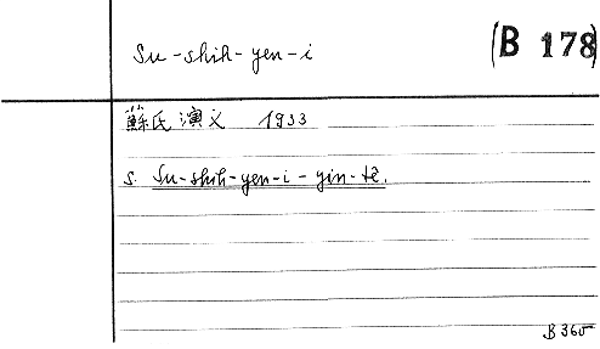 Su-shih-yen-i
(B 178)
蘇氏演义 1933
s. Su-shih-yen-i-yin-tê.
B 365